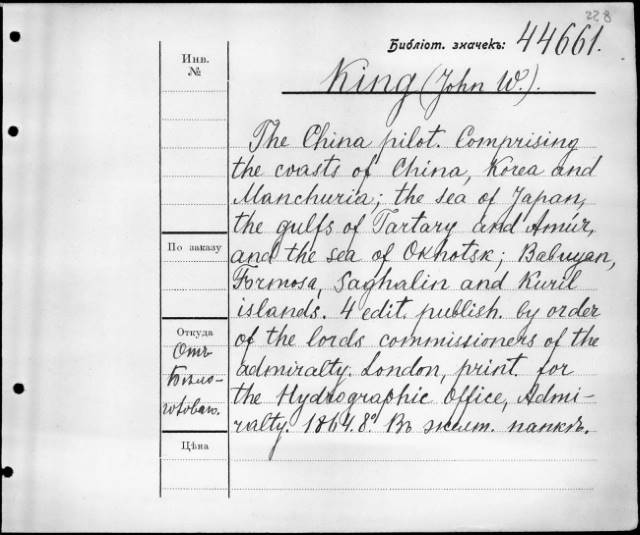 228
Библіот. значекъ: 44661.
Инв.
№
King (John W.).
The China pilot. Comprising
the coasts of China, Korea and
Manchuria; the sea of Japan,
the gulfs of Tartary and Amúr,
and the sea of Okhotsk; Babuyan,
Formosa, Saghalin and Kuril
islands. 4 edit. publish. by order
of the lords commissioners of the
admiralty. London, print. for
the Hydrographic Office, Admi-
ralty. 1864. 8°. Въ желт. папкѣ.
По заказу
Откуда
Отъ
Бѣло-
Цѣна